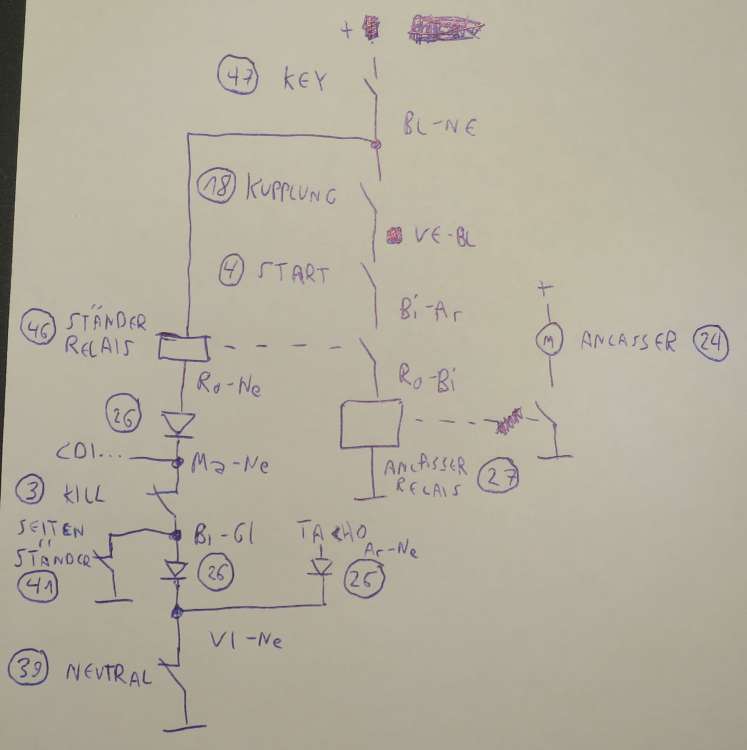 +
47 KEY
BL-NE
18 KUPPLUNG
VE-BL
4 START
Bi-Ar
+
46 STÄNDER
RELAIS
M
ANLASSER 24
Ro-Ne
Ro-Bi
26
CDI...
Ma-Ne
ANLASSER
RELAIS 27
3 KILL
SEITEN
STÄNDER
41
Bi-Gl
TACHO
Ar-Ne
26
25
VI-Ne
39 NEUTRAL